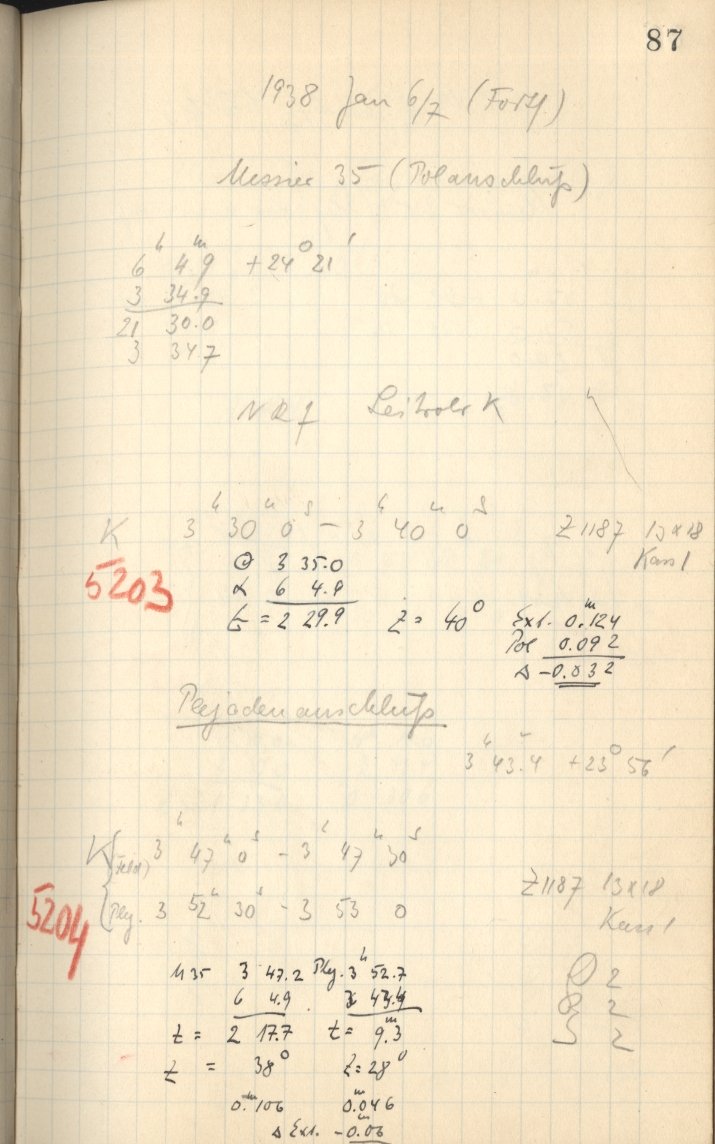 87
1938 Jan 6/7 (Forts)
Messier 35 (Polanschluß)
6h 4m.9 +24° 21'
3 34.9
21 30.0
3 34.7
Leitrohr K
K 3h 30m 0s - 3h 40m 0s Z1187 13x18
Kass 1
5203
Θ 3 35.0
α 6 4.9
t = 2 29.9 z = 40° Ext. 0m.124
Pol 0.092
Δ -0.032
Plejadenanschluß
3h 43m.4 +23° 56'
K (Feld) 3h 47m 0s - 3h 47m 30s
Z1187 13x18
Plej. 3 52m 30s - 3 53 0
Kass 1
5204
M35 3 47.2 Plej. 3h 52.7
6 4.9 3 43.4
t = 2 17.7 t = 9m.3
z = 38° z = 28°
0m.106 0m.046
Δ Ext. -0m.06
2
2
2